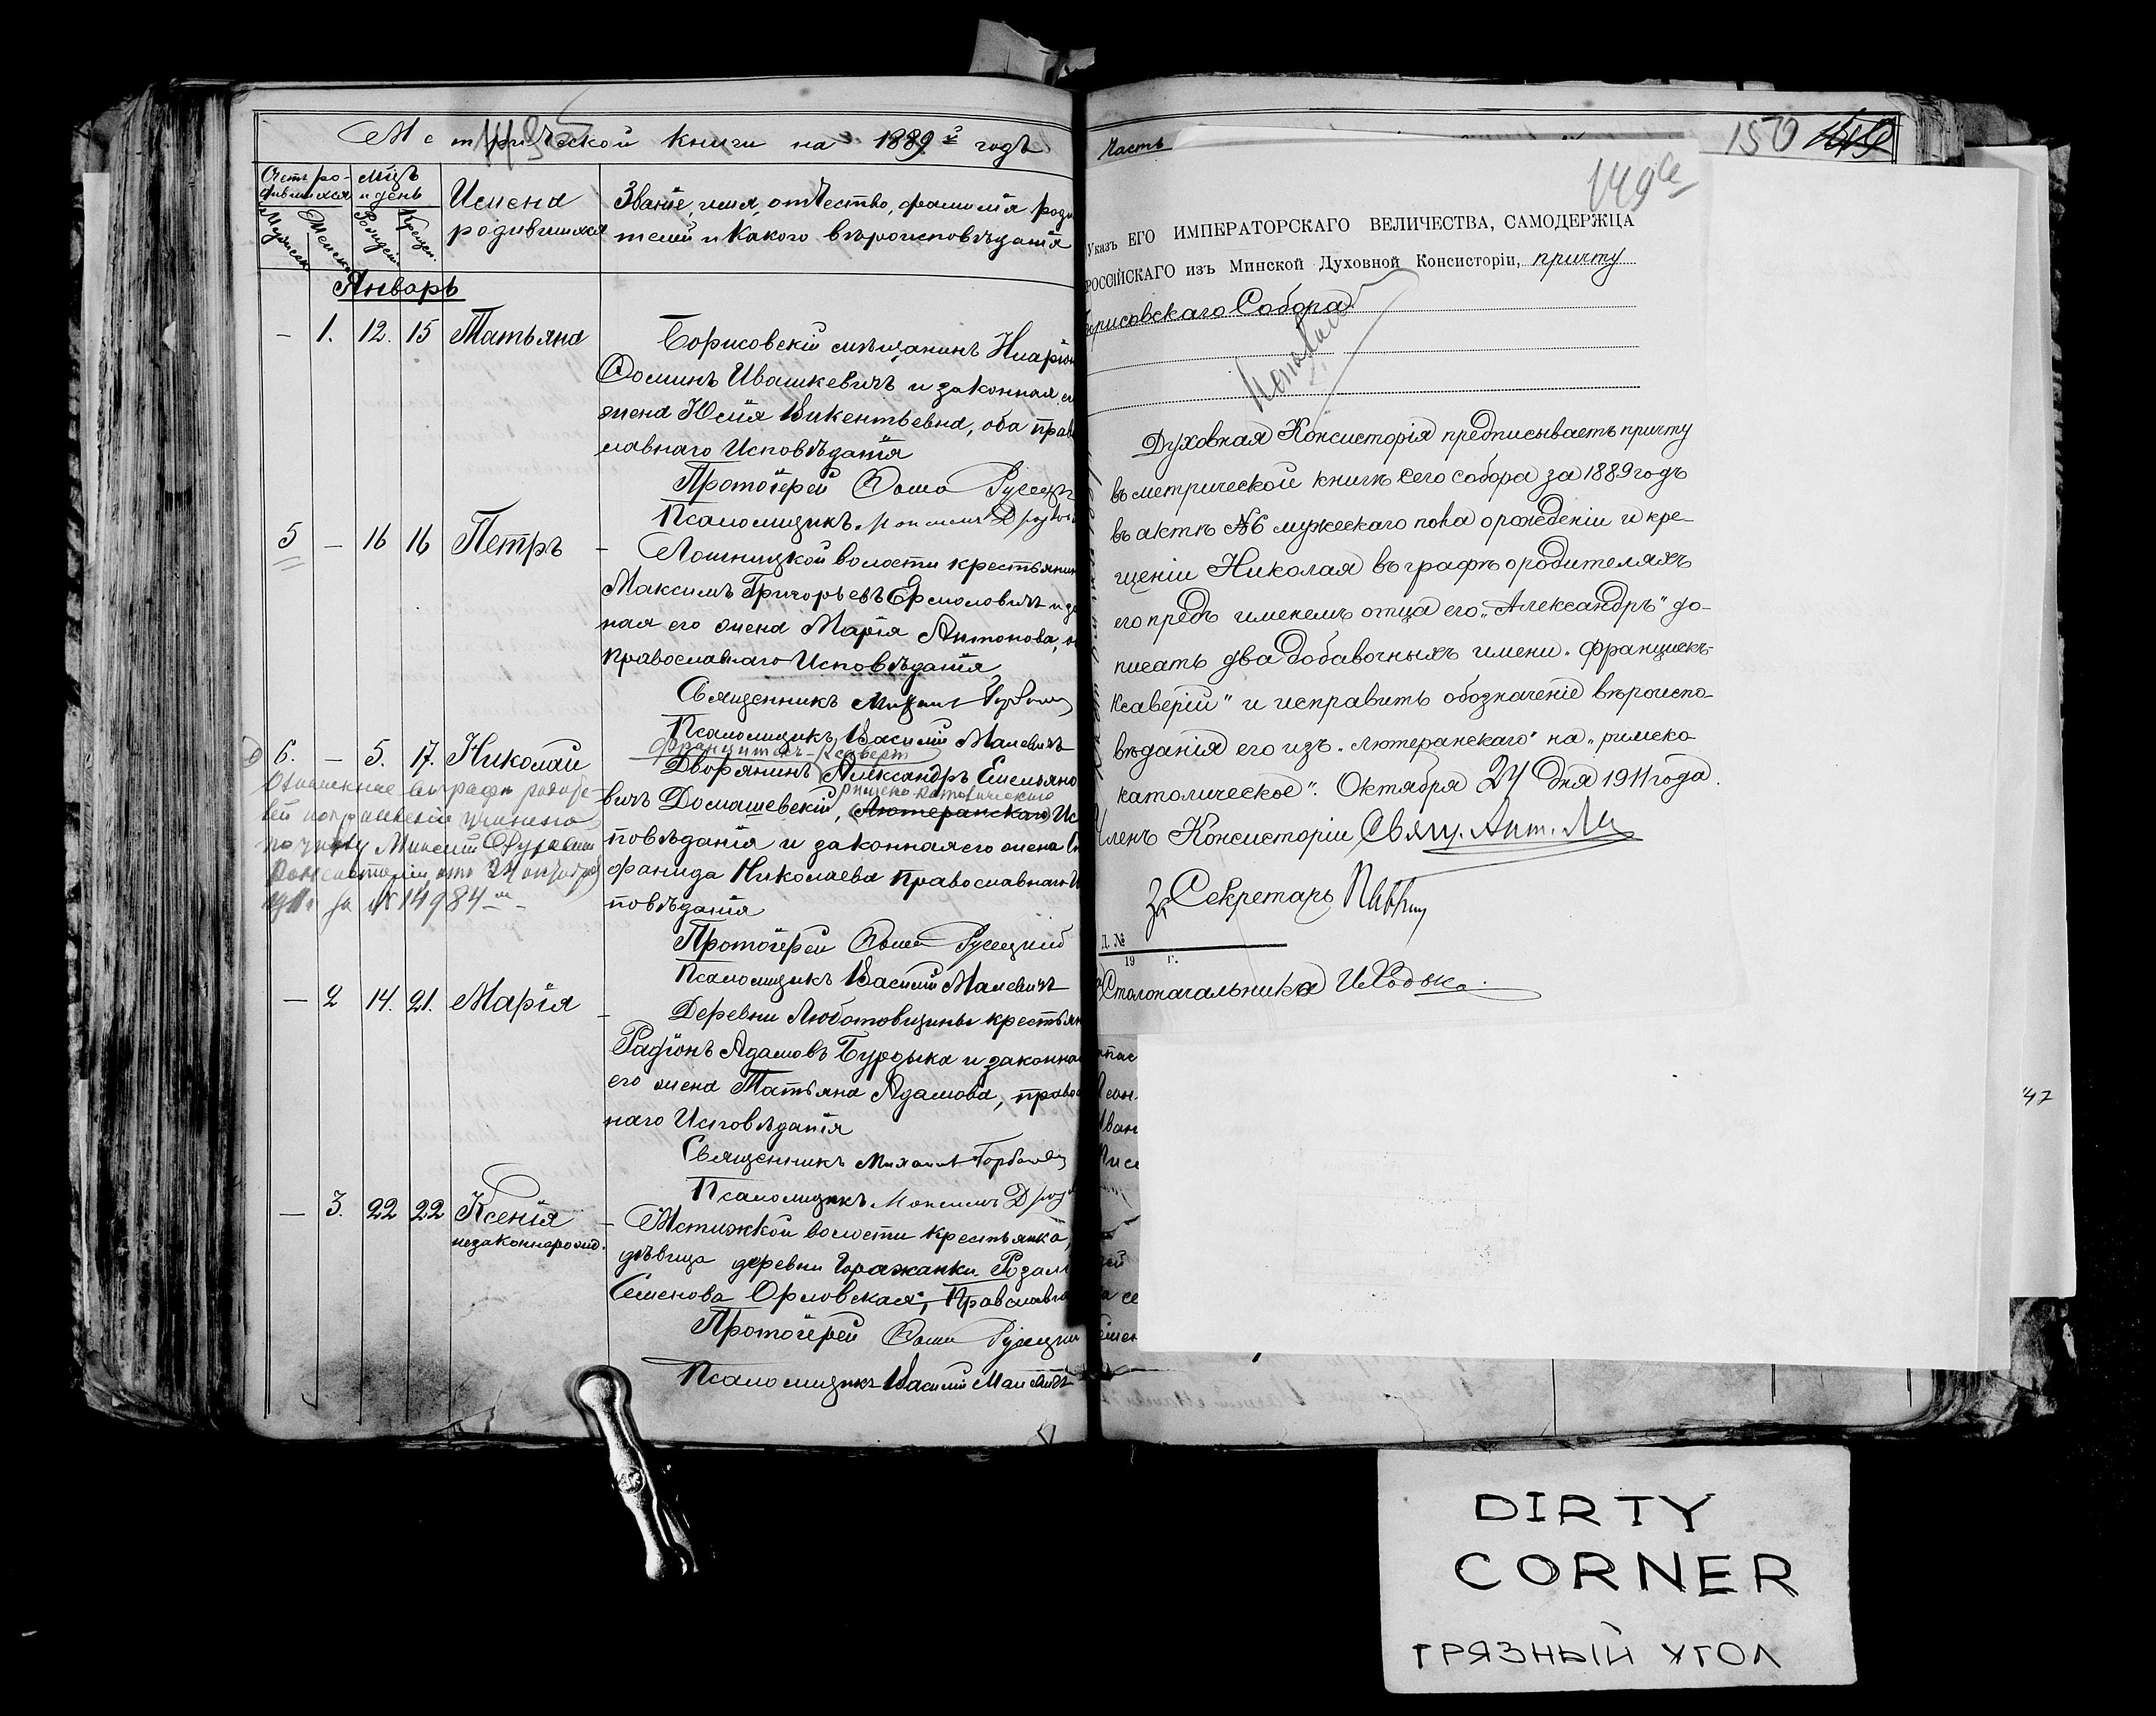 Метрической книги на 1889й годъ
Счетъ ро-
дившихся
Мужеск.
Женск.
Мцъ
и день
Рожден.
Крещен.
Имена
родившихся
Званіе, имя, отчество, фамилія роди
телей и какого вѣроисповѣданія
Январь
— 1. 12. 15 Татьяна
Борисовскій мѣщанинъ Иларіон
Ѳоминъ Ивашкевичъ и законная е
жена Юлія Викентьевна, оба прав
лавнаго Исповѣданія
Протоіерей Ѳома Русецк
Псаломщикъ
5 — 16 16 Петръ
Лошницкой волости крестьянин
Максимъ Григорьевъ Ермоловичъ и за
ная его жена Марія Антонова, о
православнаго Исповѣданія
Священникъ Михаил
Псаломщикъ Василій Малевичъ
6. — 5. 17. Николай
Францискъ-Ксаверій
Дворянинъ Александръ Емельяно
вичъ Домашевскій, римско-католическаго Лютеранскаго Ис
повѣданія и законная его жена
фанида Николаева православнаго И
повѣданія
по указу Минской Духовной
Консисторіи отъ 24 октября
за № 14984
Протоіерей Ѳома Русецкій
Псаломщикъ Василій Малевичъ
— 2 14. 21. Марія
Деревни Любатовщины крестьян
Радіонъ Адамовъ Бурдыка и законна
его жена Татьяна Адамова, правос
наго Исповѣданія
Священникъ Михаил Горбацев
Псаломщикъ
— 3. 22 22 Ксенія
незаконнорожд.
Мстижкой волости крестьянка,
дѣвица деревни Горажанки Розал
Семенова Орловская, Правслав
Протоіерей Ѳома Русецкий
Псаломщикъ Василій Малевичъ
Часть
150
149а
Указъ ЕГО ИМПЕРАТОРСКАГО ВЕЛИЧЕСТВА, САМОДЕРЖЦА
РОССІЙСКАГО изъ Минской Духовной Консисторіи, причту
Борисовскаго Собора
Духовная Консисторія предписываетъ причту
въ метрической книгѣ сего собора за 1889 годъ
въ актѣ №6 мужескаго пола о рожденіи и кре-
щеніи Николая въ графѣ о родителяхъ
его предъ именемъ отца его „Александръ" до-
писать два добавочныхъ имени „Францискъ-
Ксаверій" и исправить обозначеніе вѣроиспо-
вѣданія его изъ „лютеранскаго" на „римско-
католическое". Октября 24 дня 1911 года.
Членъ Консисторіи Свящ. Ант.
За Секретарь
Д. №
19 г.
Столоначальника
47
DIRTY
CORNER
ГРЯЗНЫЙ УГОЛ